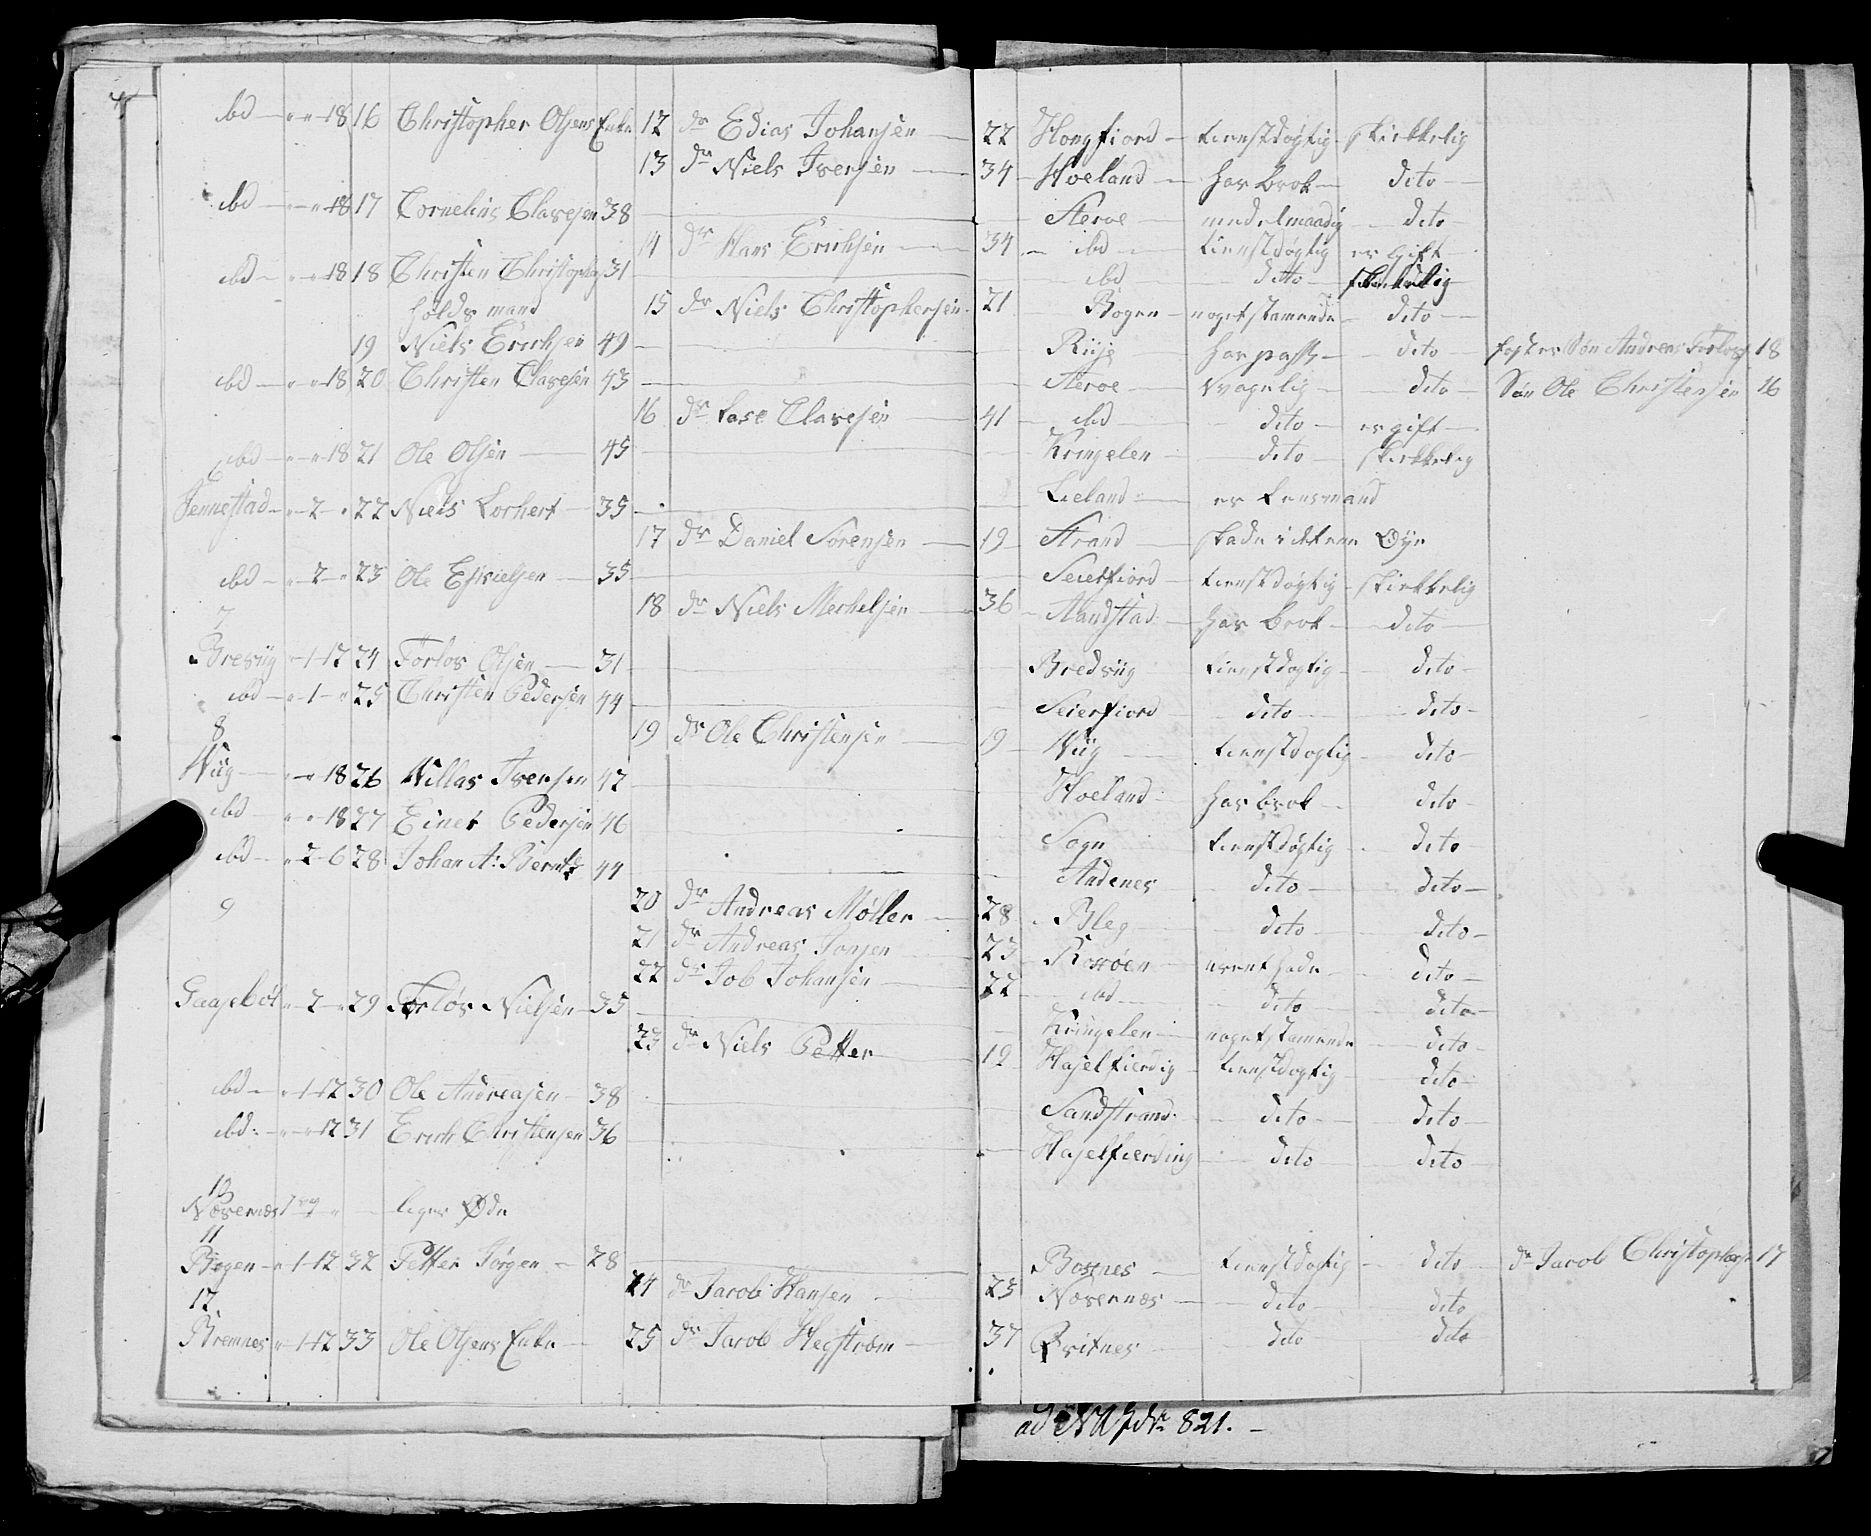 ibd 18 16 Christopher Olsens Enke 12 dr Edias Johansen 22 Hongfiord tienstdøgtig skikkelig
13 dr Niels Iversen 34 Hoeland har brok dito
ibd 18 17 Cornelius Clavesen 38 Steroe medelmaadig dito
14 dr Hans Erichsen 34 ibd tienstdøgtig er gift
ibd 18 18 Christen Christophers 31 ibd dito skikkelig
holds mand 15 dr Niels Christophersen 21 Bogen noget stamende dito
19 Niels Erichsen 49 Riise har pass dito foster Søn Andreas Torlos 18
ibd 18 20 Christen Clavesen 43 Steroe svagelig dito Søn Ole Christensen 16
16 dr Lase Clavesen 41 ibd dito er gift
ibd 18 21 Ole Olsen 45 Kringelen dito skikkelig
6
Jennestad 2 22 Niels Lorhert 35 Lieland er Lensmand
17 dr Daniel Sørensen 19 Strand skade i det ene Øye
ibd 2 23 Ole Eskielsen 35 Seierfiord tienstdøgtig skikkelig
18 dr Niels Merkelsen 36 Aandstad har brok dito
7
Breviig 1 12 24 Torlos Olsen 31 Bredviig tienstdogtig dito
ibd 1 25 Christen Pedersen 44 Seierfiord dito dito
8 19 dr Ole Christensen 19 Wiig tienstdogtig dito
Wiig 18 26 Nillas Iversen 42 Hoeland har brok dito
ibd 18 27 Einer Pedersen 46 Sogn tienstdøgtig dito
ibd 2 6 28 Johan A: Berntz 44 Andenes dito dito
9 20 dr Andreas Møller 28 Bleg dito dito
21 dr Andreas Jonsen 23 Rossøen dito
22 dr Job Johansen 22 ibd dito dito
Gaasebøl 2 29 Torløs Nielsen 35 Kringelen noget stamende dito
23 dr Niels Petter 19 Haselfierdig tienstdogtig dito
ibd 1 12 30 Ole Andreasen 38 Sandstrand dito dito
ibd 12 31 Erich Christensen 36 Haselfierding dito dito
10
Nævernæs leger Øde
11
Bogen 1 12 32 Petter Jørgen 28 Bosnes tienstdogtig dito dr Jacob Christophers 17
24 dr Jacob Hansen 23 Næsernæs dito dito
12
Bremnes 1 12 33 Ole Olsens Enke 25 dr Jacob Hegstrøm 37 Qvitnes dito dito
821.